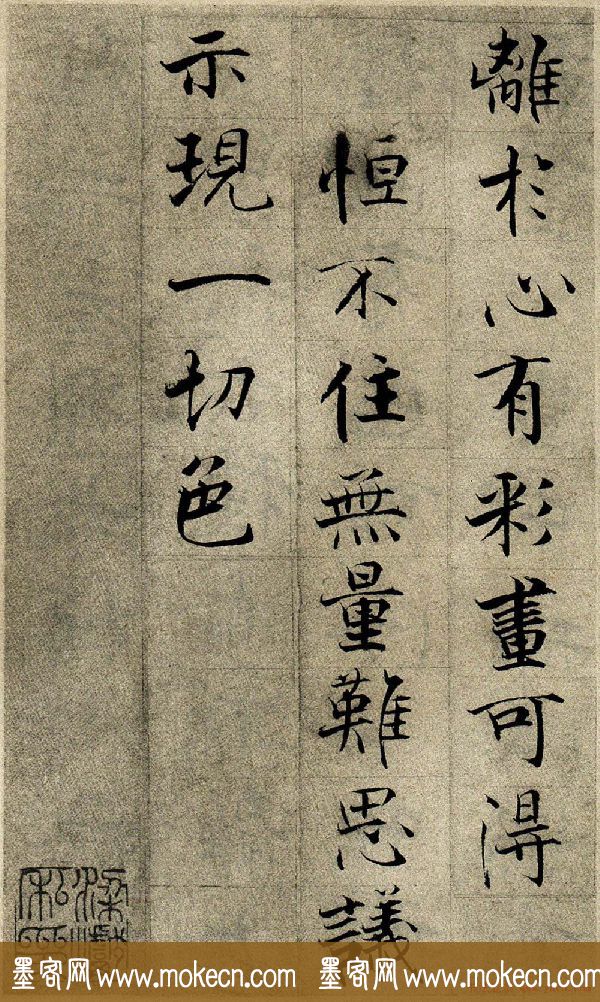 離於心有彩畫可得
恒不住無量難思議
示現一切色
墨客网 www.mokecn.com 墨客网 www.mokecn.com